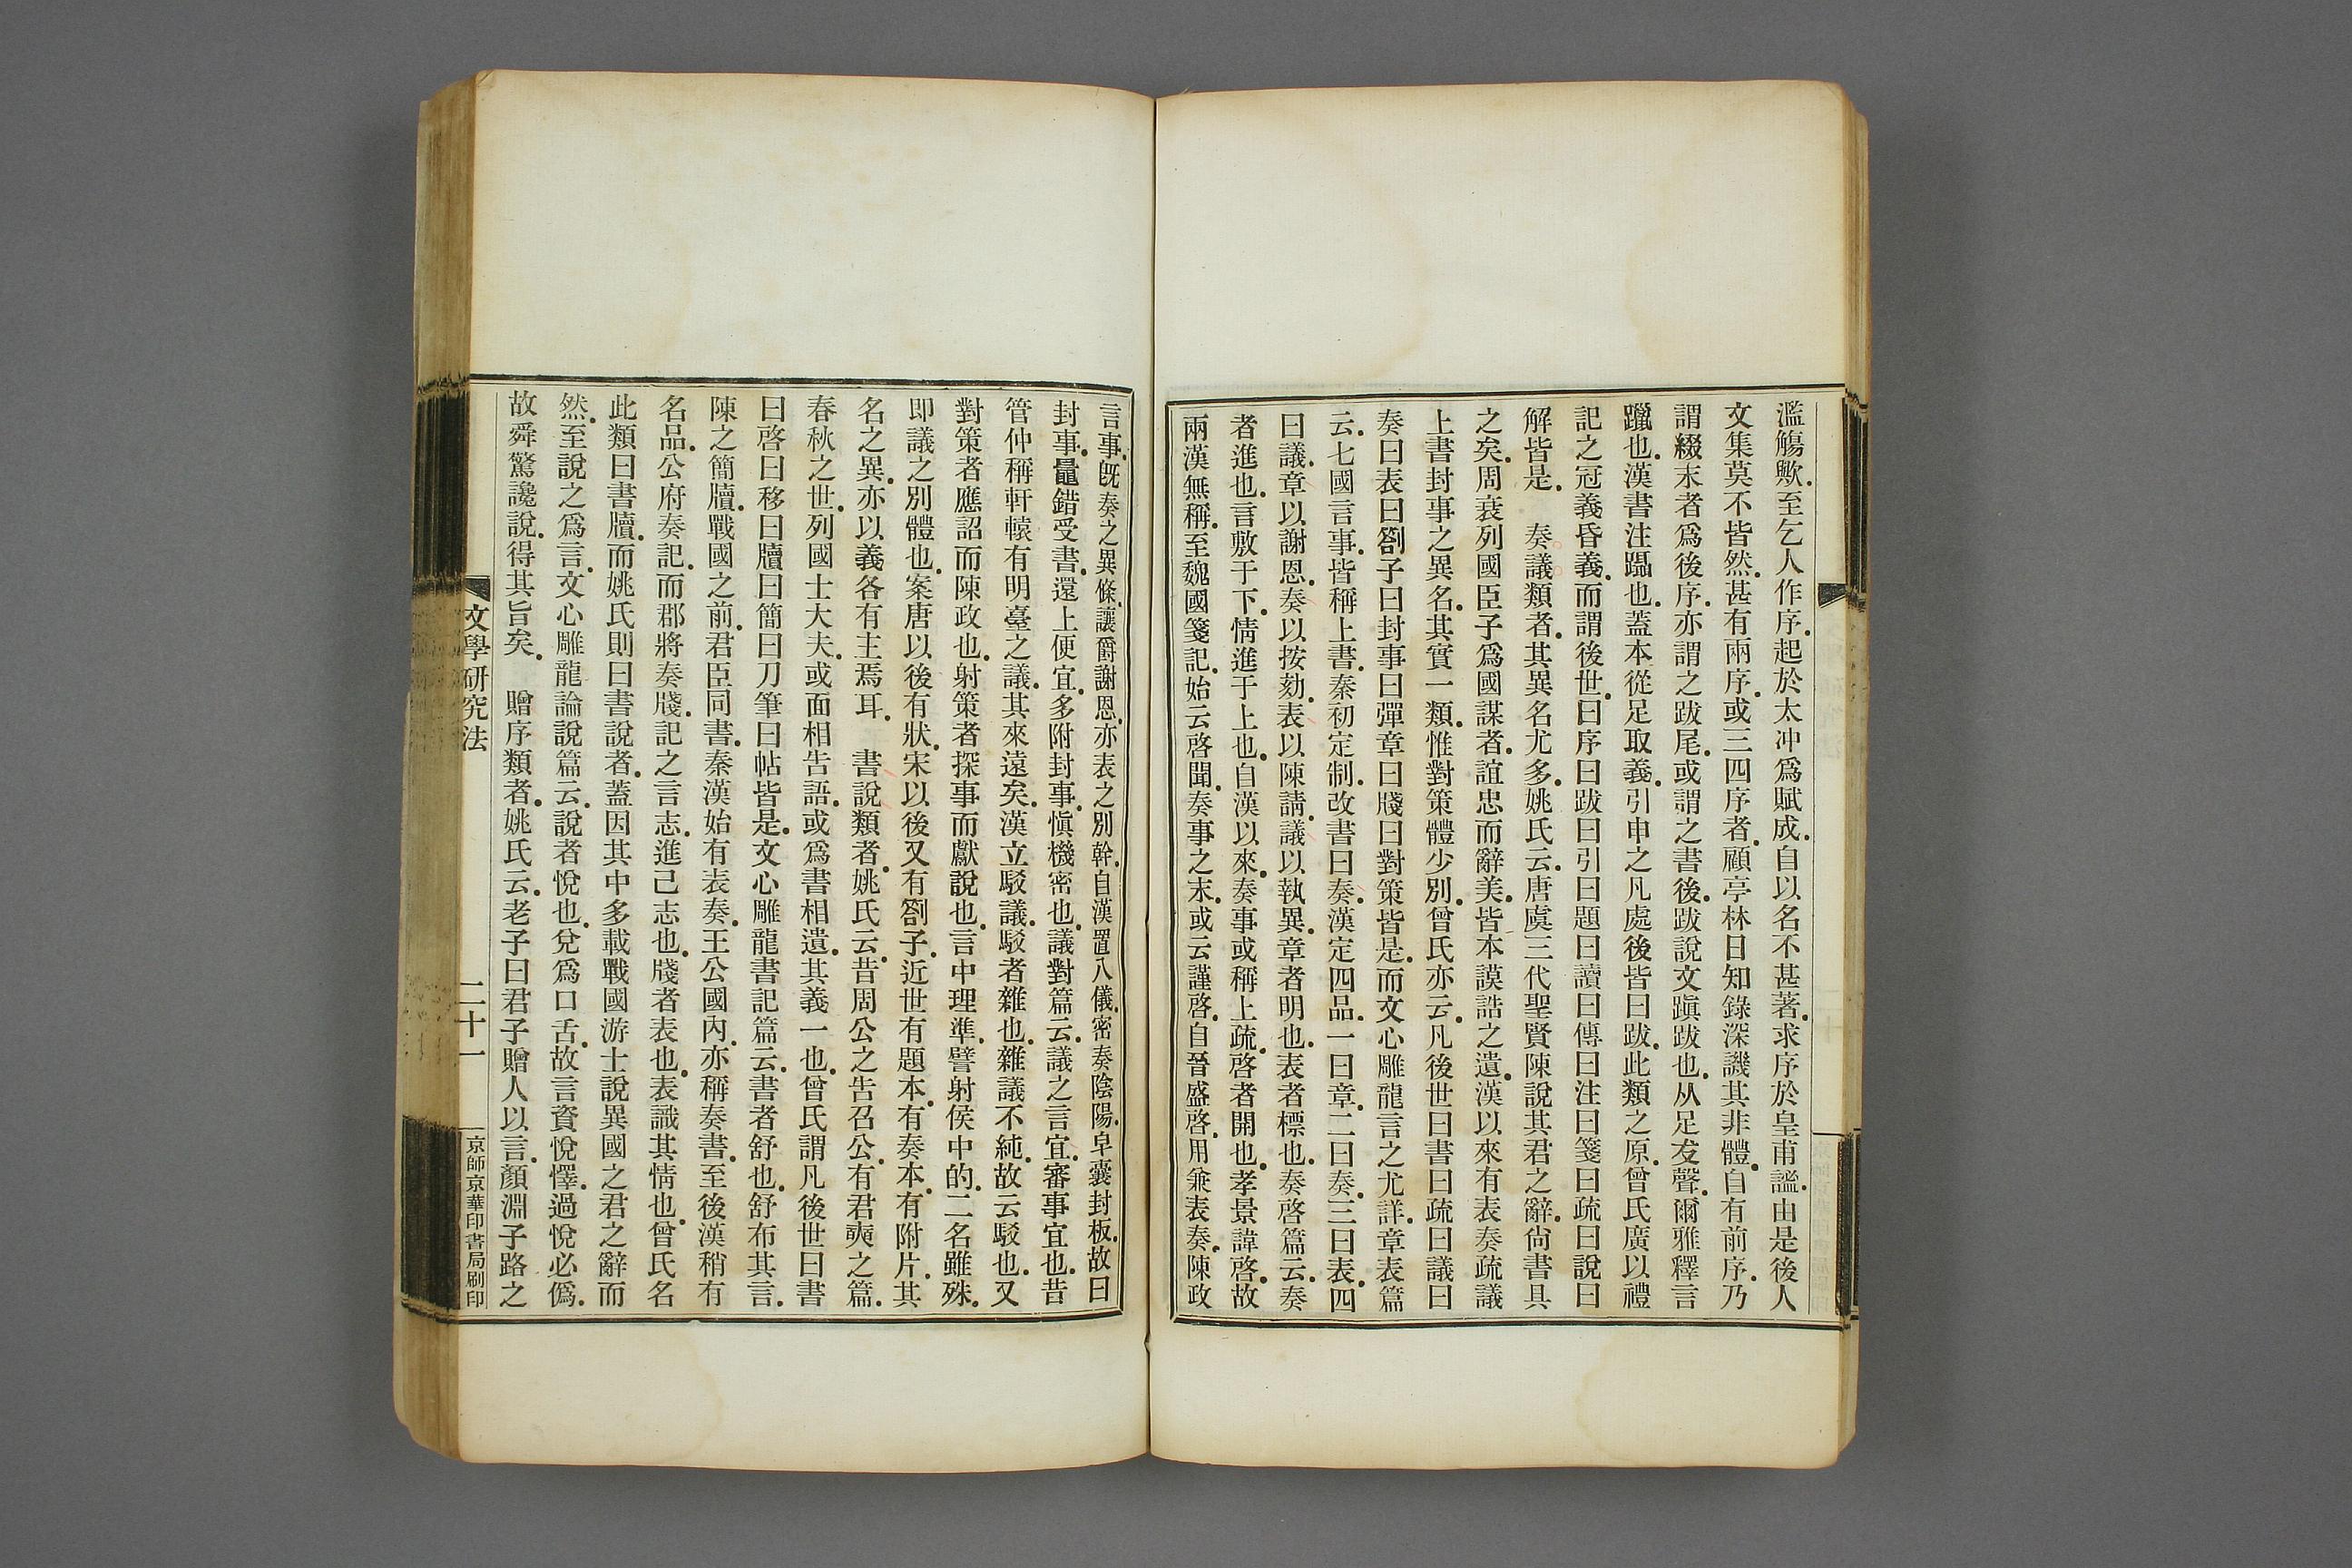 濫觴歟至乞人作序起於太冲爲賦成自以名不甚著求序於皇甫謐由是後人
文集莫不皆然甚有兩序或三四序者顧亭林日知錄深譏其非體自有前序乃
謂綴末者爲後序亦謂之跋尾或謂之書後跋說文蹎跋也从足犮聲爾雅釋言
躐也漢書注躡也蓋本從足取義引申之凡處後皆曰跋此類之原曾氏廣以禮
記之冠義昏義而謂後世曰序曰跋曰引曰題曰讀曰傳曰注曰箋曰疏曰說曰
解皆是　奏議類者其異名尤多姚氏云唐虞三代聖賢陳說其君之辭尙書具
之矣周衰列國臣子爲國謀者誼忠而辭美皆本謨誥之遺漢以來有表奏疏議
上書封事之異名其實一類惟對策體少別曾氏亦云凡後世曰書曰疏曰議曰
奏曰表曰劄子曰封事曰彈章曰牋曰對策皆是而文心雕龍言之尤詳章表篇
云七國言事皆稱上書秦初定制改書曰奏漢定四品一曰章二曰奏三曰表四
曰議章以謝恩奏以按劾表以陳請議以執異章者明也表者標也奏啓篇云奏
者進也言敷于下情進于上也自漢以來奏事或稱上疏啓者開也孝景諱啓故
兩漢無稱至魏國箋記始云啓聞奏事之末或云謹啓自晉盛啓用兼表奏陳政
言事旣奏之異條讓爵謝恩亦表之別幹自漢置八儀密奏陰陽皁囊封板故曰
封事鼂錯受書還上便宜多附封事愼機密也議對篇云議之言宜審事宜也昔
管仲稱軒轅有明臺之議其來遠矣漢立駁議駁者雜也雜議不純故云駁也又
對策者應詔而陳政也射策者探事而獻說也言中理準譬射侯中的二名雖殊
即議之別體也案唐以後有狀宋以後又有劄子近世有題本有奏本有附片其
名之異亦以義各有主焉耳　書說類者姚氏云昔周公之告召公有君奭之篇
春秋之世列國士大夫或面相告語或爲書相遺其義一也曾氏謂凡後世曰書
曰啓曰移曰牘曰簡曰刀筆曰帖皆是文心雕龍書記篇云書者舒也舒布其言
陳之簡牘戰國之前君臣同書秦漢始有表奏王公國內亦稱奏書至後漢稍有
名品公府奏記而郡將奏牋記之言志進己志也牋者表也表識其情也曾氏名
此類曰書牘而姚氏則曰書說者蓋因其中多載戰國游士說異國之君之辭而
然至說之爲言文心雕龍論說篇云說者悅也兌爲口舌故言資悅懌過悅必僞
故舜驚讒說得其旨矣　贈序類者姚氏云老子曰君子贈人以言顏淵子路之
文學研究法
二十一
京師京華印書局刷印